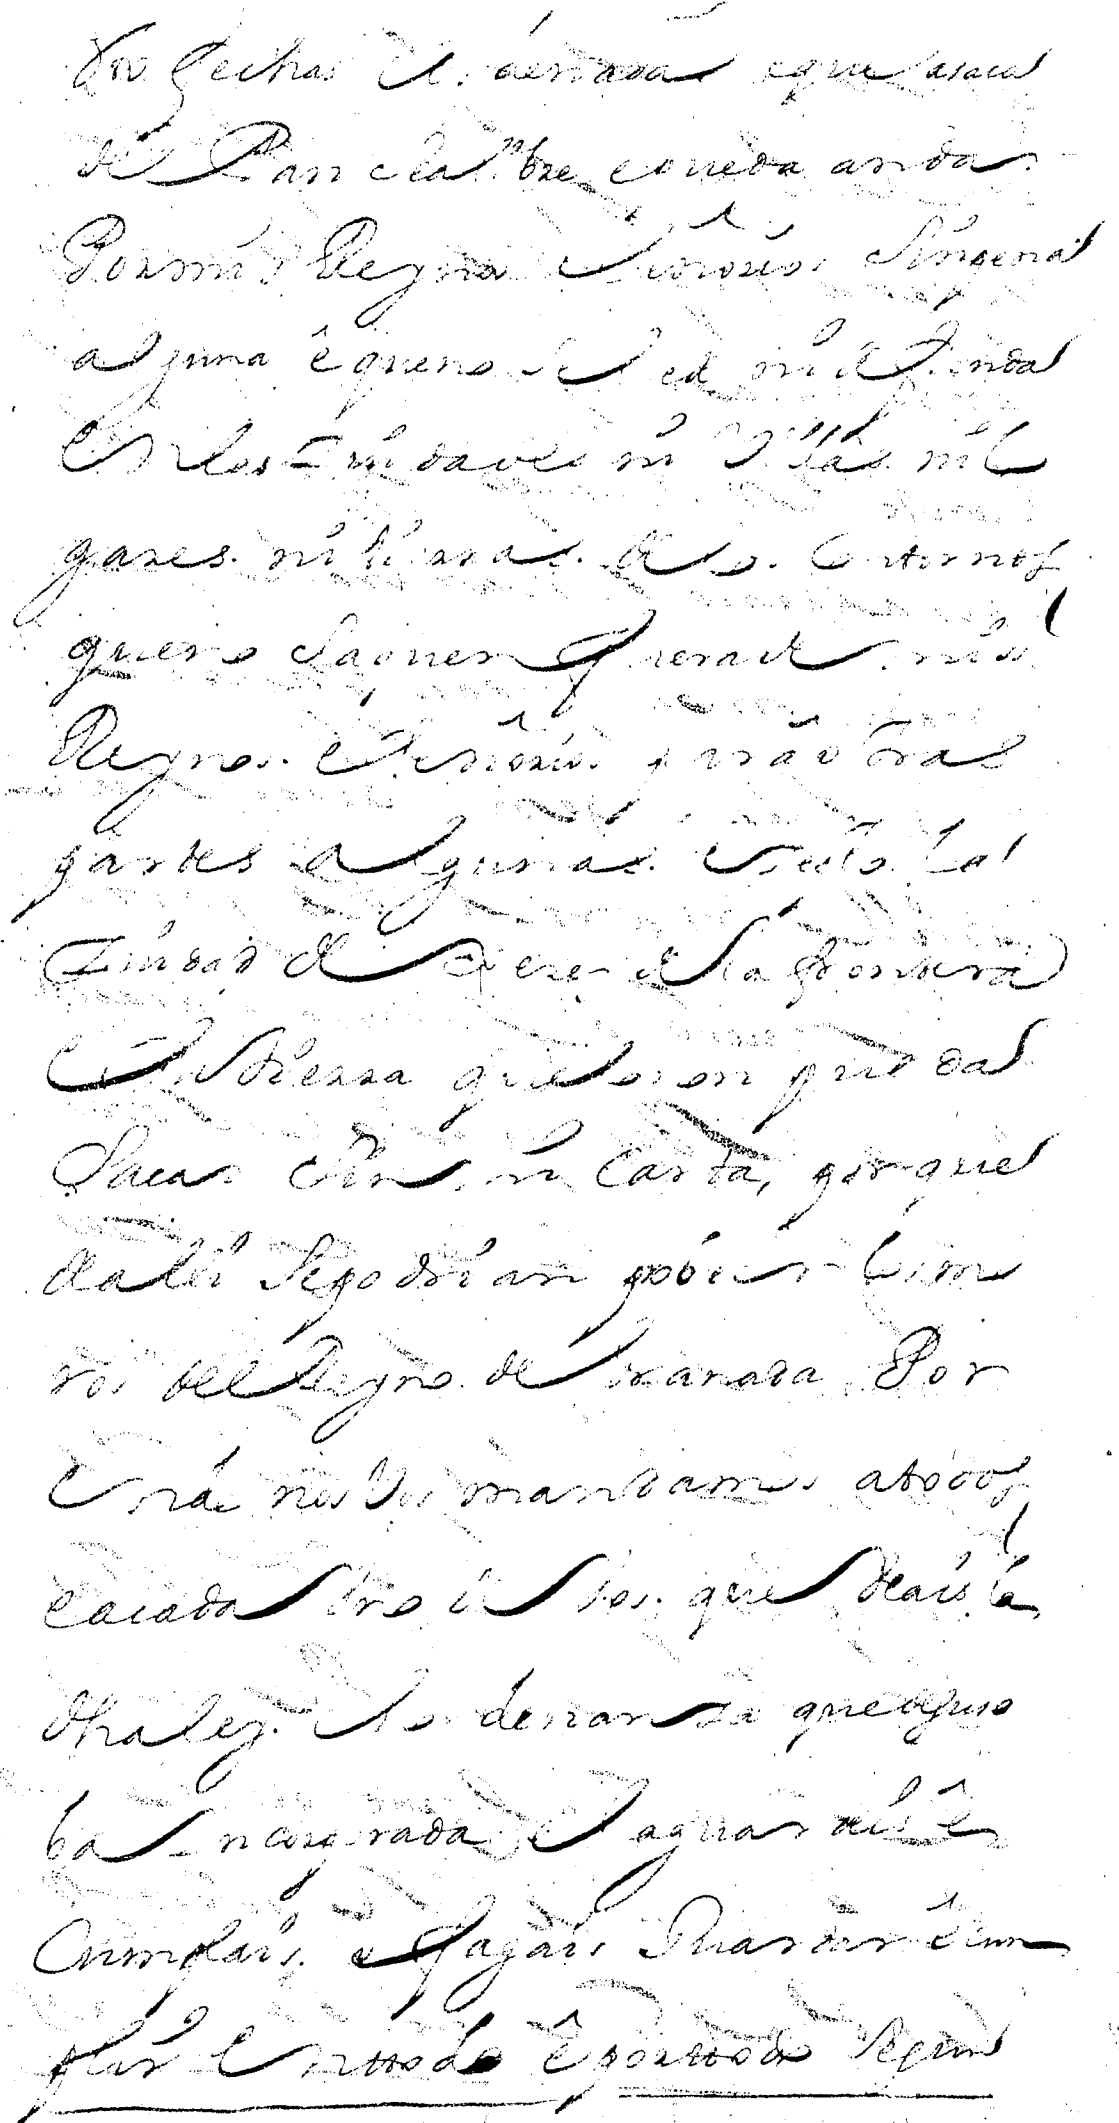 dos fechas el denada eque lasaca
de Pan cea libre epueda andar
Por mis Regnos e Señorios Sinpena
alguna é queno sea ed nidefenda
En las Ciudades ni Villas ni lu
gares ni tierras. de los Contornos
queno Saquen fuerade mis
Regnos e Señorios para otras
partes algunas Eseelo la
Ciudad de Xerez de la frontera
E su tierra queno en pueda
Sacar sin mi Carta, porque
dealli Sepodrian poner los mo
ros del Regno de Granada Por
Ende nos vos mandamos atodos
eacada Uno de Vos que Veais la
dha ley. e ordenanza quedesuso
ba encorporada e laguardeis é
Cumplais e fagais Guardar é cum
plir Entodo é portodo Segun